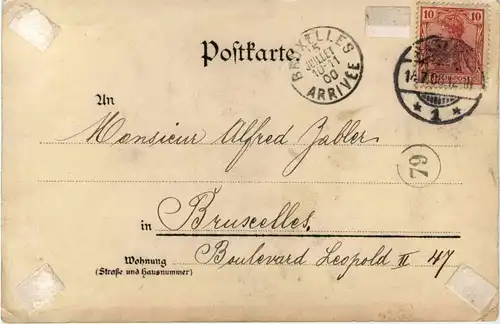 10 10
Postkarte.
BRUXELLES
15
JUILLET
10-11
00
ARRIVÉE
14.7.00
* 1 *
An
Monsieur Alfred Zabler
79
in
Bruxelles.
Wohnung
(Straße und Hausnummer)
Boulevard Leopold II 47